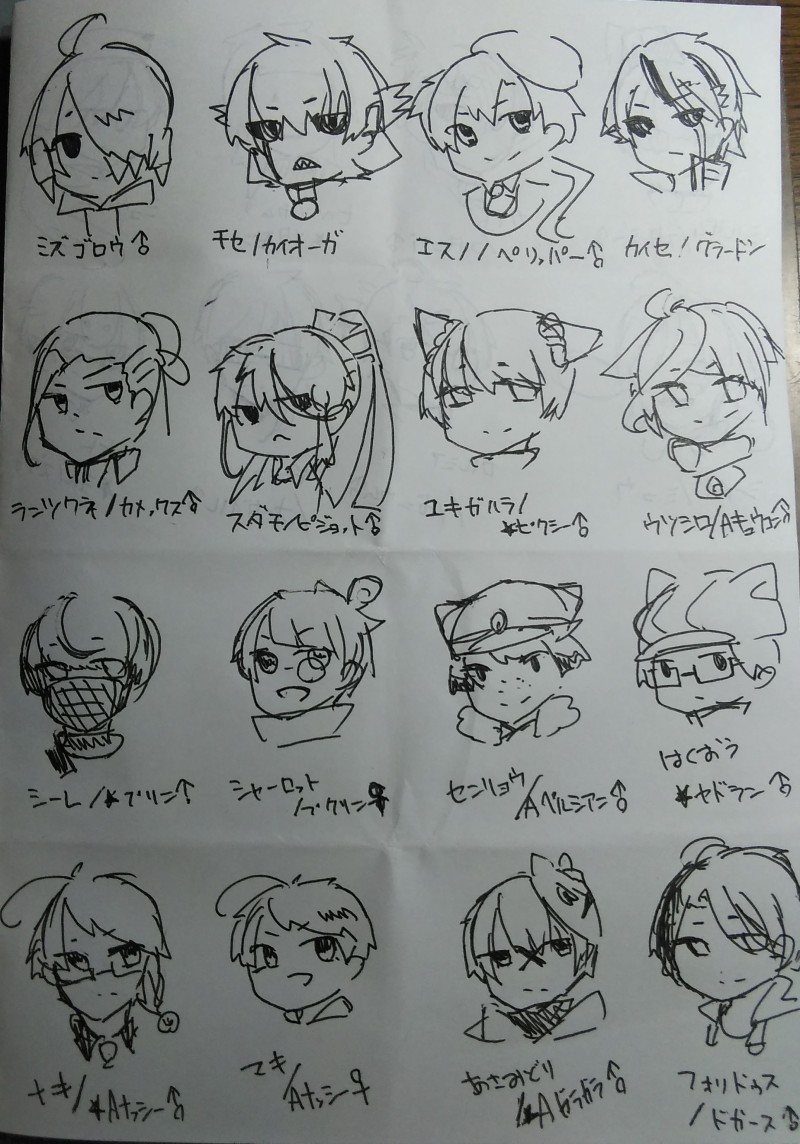 ミズゴロウ♂
チセ/カイオーガ
エスノ/ペリッパー♂
カイセ!/グラードン
ランツクネ/カメックス♂
スダモ/ピジョット♂
ユキガハラ/
★ピクシー♂
ウツシロ/Aキュウコン♂
シーレ/★プリン♂
シャーロット
/プクリン♀
センリョウ
/Aペルシアン♂
はくおう
★ヤドラン♂
ナキ/★Aナッシー♂
マキ/
Aナッシー♀
あさみどり
/★Aガラガラ♂
フォリドゥス
/ドガース♂